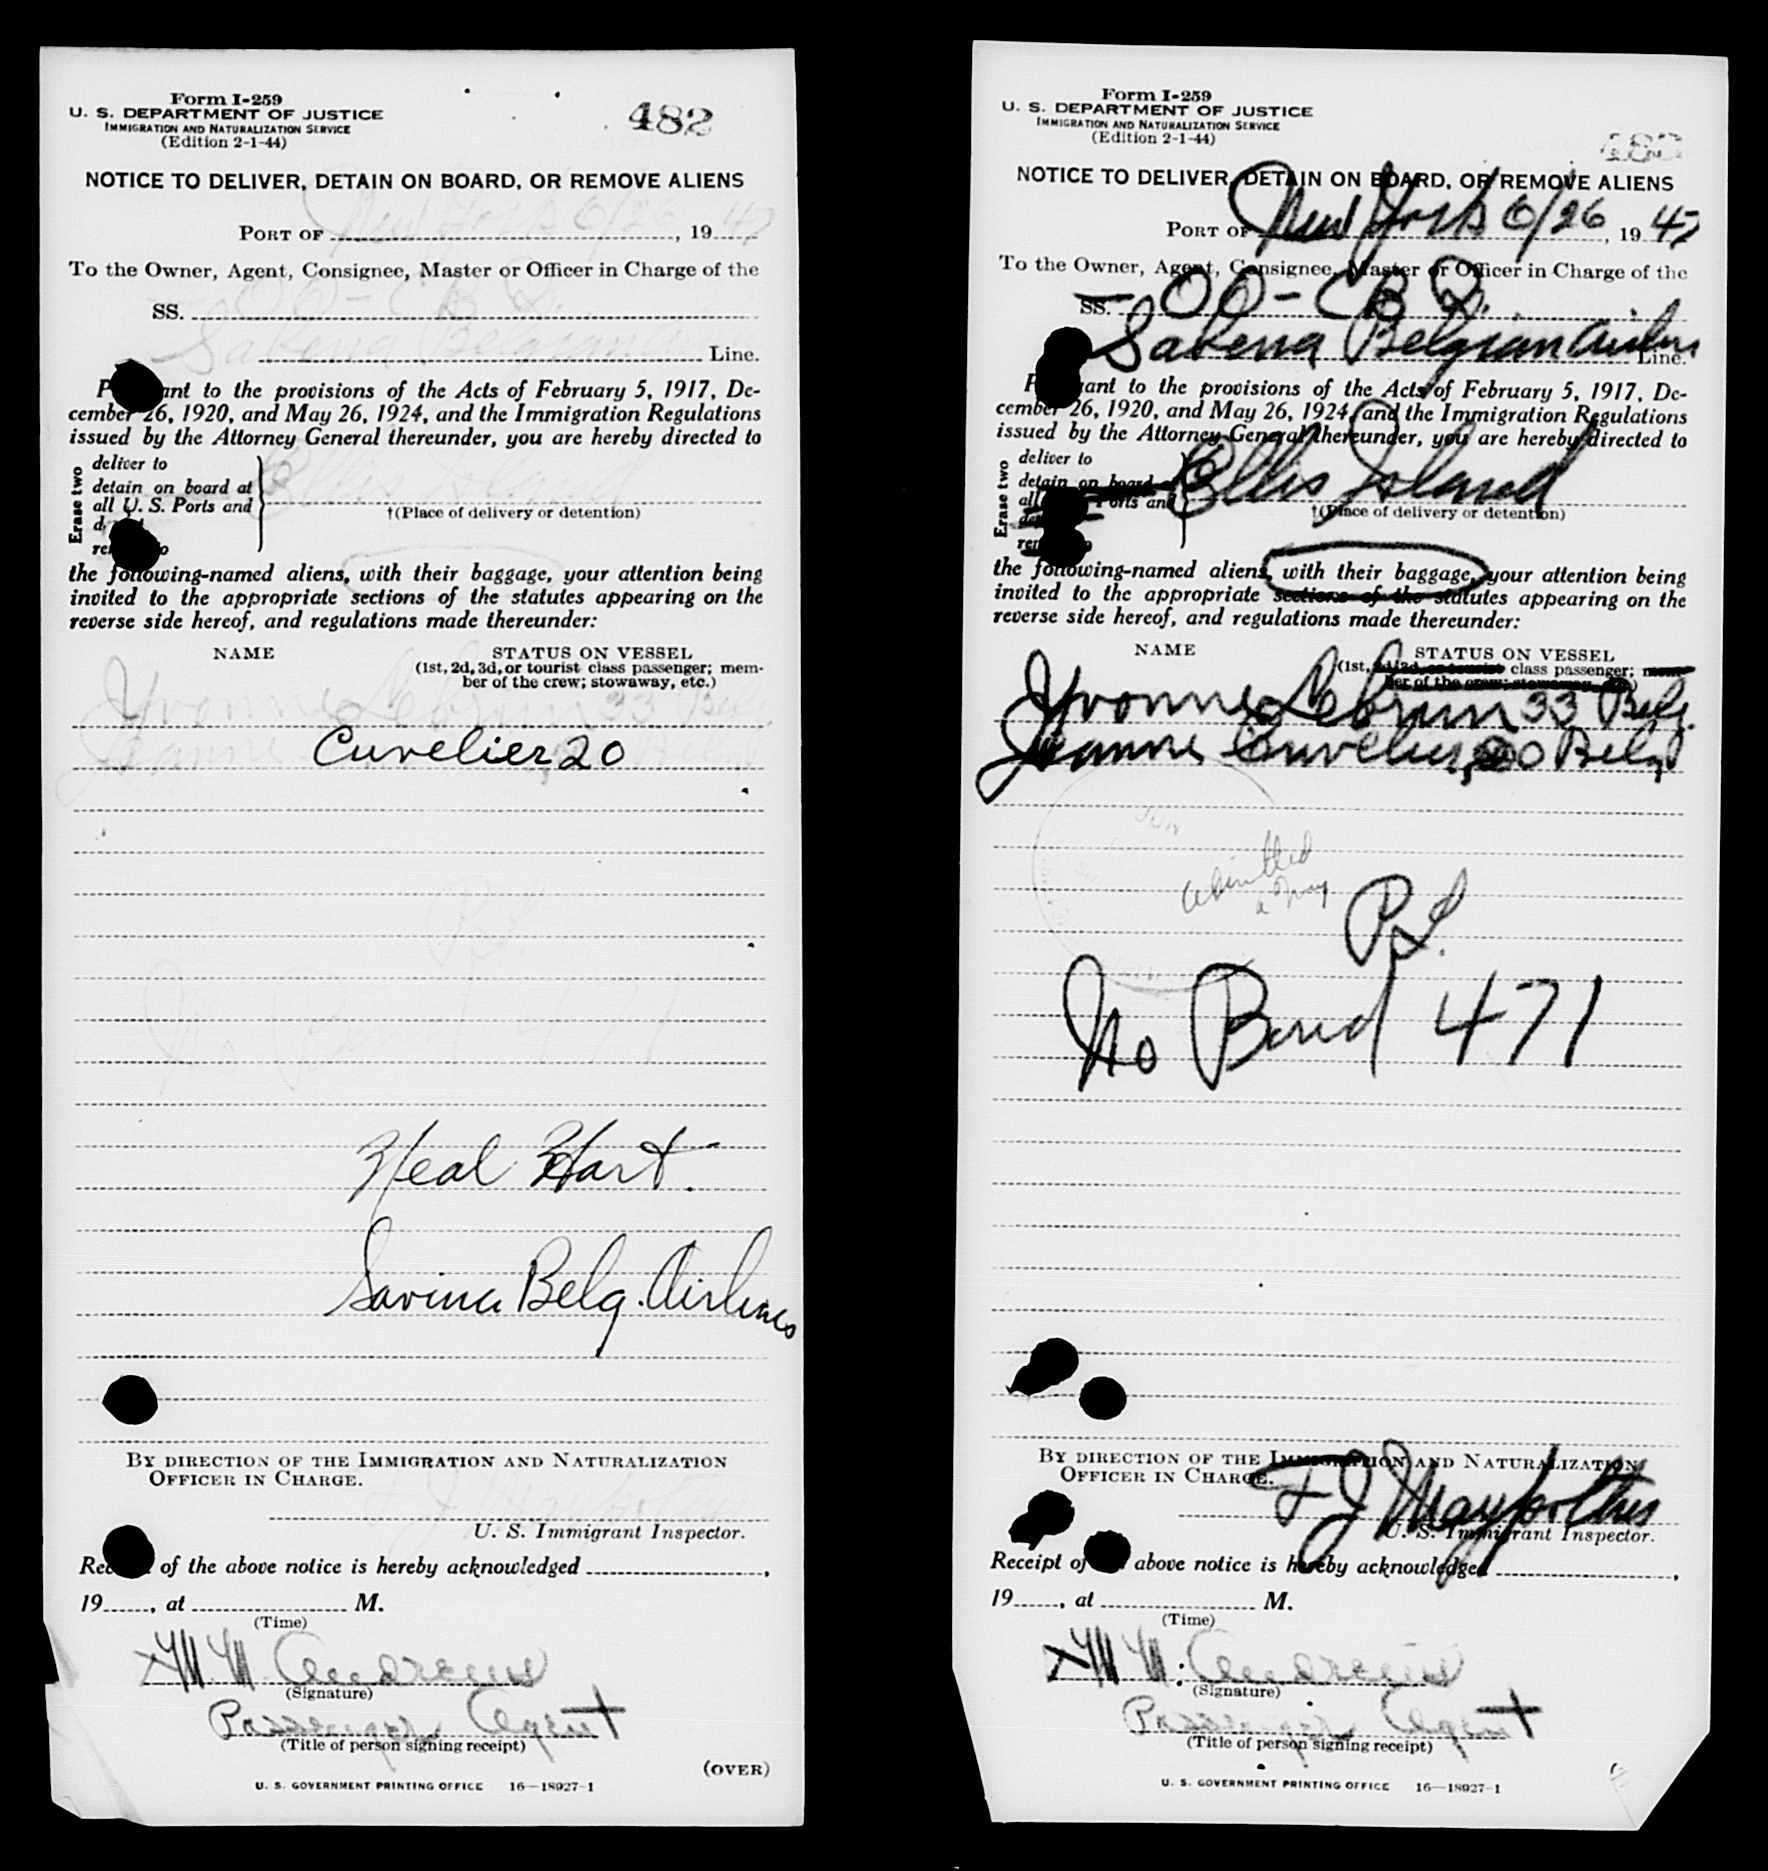 Form I-259
U. S. DEPARTMENT OF JUSTICE
IMMIGRATION AND NATURALIZATION SERVICE
(Edition 2-1-44)
482
NOTICE TO DELIVER, DETAIN ON BOARD, OR REMOVE ALIENS
PORT OF New York 6/26, 1947
To the Owner, Agent, Consignee, Master or Officer in Charge of the
SS. OO-CB
Sabena Belgian Line.
ant to the provisions of the Acts of February 5, 1917, De-
cember 26, 1920, and May 26, 1924, and the Immigration Regulations
issued by the Attorney General thereunder, you are hereby directed to
Erase two
deliver to
detain on board at
all U. S. Ports and
Ellis Island
†(Place of delivery or detention)
the following-named aliens, with their baggage, your attention being
invited to the appropriate sections of the statutes appearing on the
reverse side hereof, and regulations made thereunder:
NAME STATUS ON VESSEL
(1st, 2d, 3d, or tourist class passenger; mem-
ber of the crew; stowaway, etc.)
Yvonne Lebrun 33 Belg.
Jeanne Cuvelier 20
P.S.
No Bond 471
Neal Hart.
Savina Belg. Airlines
BY DIRECTION OF THE IMMIGRATION AND NATURALIZATION
OFFICER IN CHARGE.
U. S. Immigrant Inspector.
of the above notice is hereby acknowledged ,
19 , at M.
(Time)
M. Andrews
(Signature)
Passenger Agent
(Title of person signing receipt)
(OVER)
U. S. GOVERNMENT PRINTING OFFICE 16—18927-1
Form I-259
U. S. DEPARTMENT OF JUSTICE
IMMIGRATION AND NATURALIZATION SERVICE
(Edition 2-1-44)
NOTICE TO DELIVER, DETAIN ON BOARD, OR REMOVE ALIENS
PORT OF New York 6/26, 1947
To the Owner, Agent, Consignee, Master or Officer in Charge of the
SS. OO-CB
Sabena Belgian Airlines Line.
ant to the provisions of the Acts of February 5, 1917, De-
cember 26, 1920, and May 26, 1924, and the Immigration Regulations
issued by the Attorney General thereunder, you are hereby directed to
Erase two
deliver to
detain on board at
all Ports and
Ellis Island
†(Place of delivery or detention)
the following-named aliens, with their baggage, your attention being
invited to the appropriate sections of the statutes appearing on the
reverse side hereof, and regulations made thereunder:
NAME STATUS ON VESSEL
(1st, 2d, 3d, or tourist class passenger; mem-
ber of the crew; stowaway, etc.)
Yvonne Lebrun 33 Belg.
Jeanne Cuvelier, 20 Belg
admitted
P.S.
No Bond 471
BY DIRECTION OF THE IMMIGRATION AND NATURALIZATION
OFFICER IN CHARGE.
U. S. Immigrant Inspector.
Receipt of above notice is hereby acknowledged ,
19 , at M.
(Time)
M. Andrews
(Signature)
Passenger Agent
(Title of person signing receipt)
U. S. GOVERNMENT PRINTING OFFICE 16—18927-1